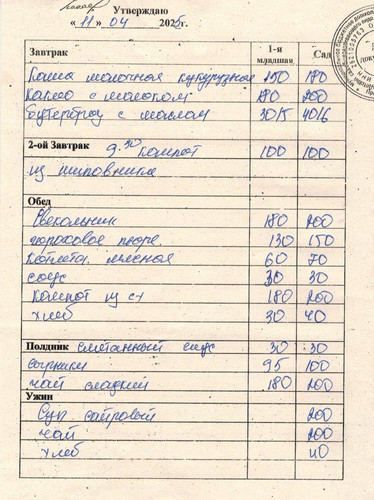 Утверждаю
« 11 » 04 2025г.
Завтрак 1-я младшая Сад
Каша молочная кукурузная 150 180
Какао с молоком 180 200
Бутерброд с маслом 30/5 40/6
2-ой Завтрак 9.30 Компот 100 100
из шиповника
Обед
Свекольник 180 200
гороховое пюре 130 150
Котлета мясная 60 70
соус 30 30
Компот из с- 180 200
хлеб 30 40
Полдник сметанный соус 30 30
сырники 95 100
чай сладкий 180 200
Ужин
Суп сырный 200
чай 200
хлеб 40